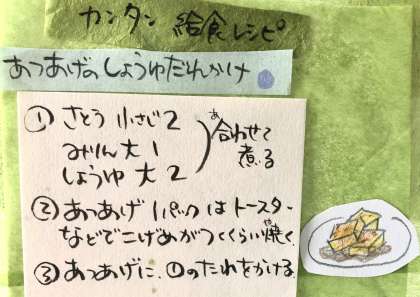 カンタン 給食レシピ
あつあげのしょうゆだれかけ
① さとう 小さじ2
みりん 大1
しょうゆ 大2
合わせて
あ
煮る
② あつあげ 1パックはトースター
などでこげめがつくくらい焼く
③ あつあげに、①のたれをかける